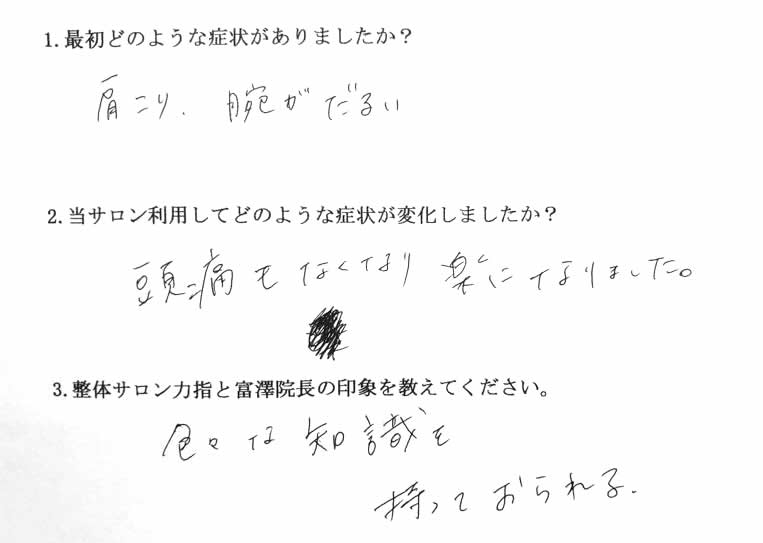 1.最初どのような症状がありましたか？
肩こり、腕がだるい
2.当サロン利用してどのような症状が変化しましたか？
頭痛もなくなり楽になりました。
3.整体サロン力指と富澤院長の印象を教えてください。
色々な知識を
持っておられる.